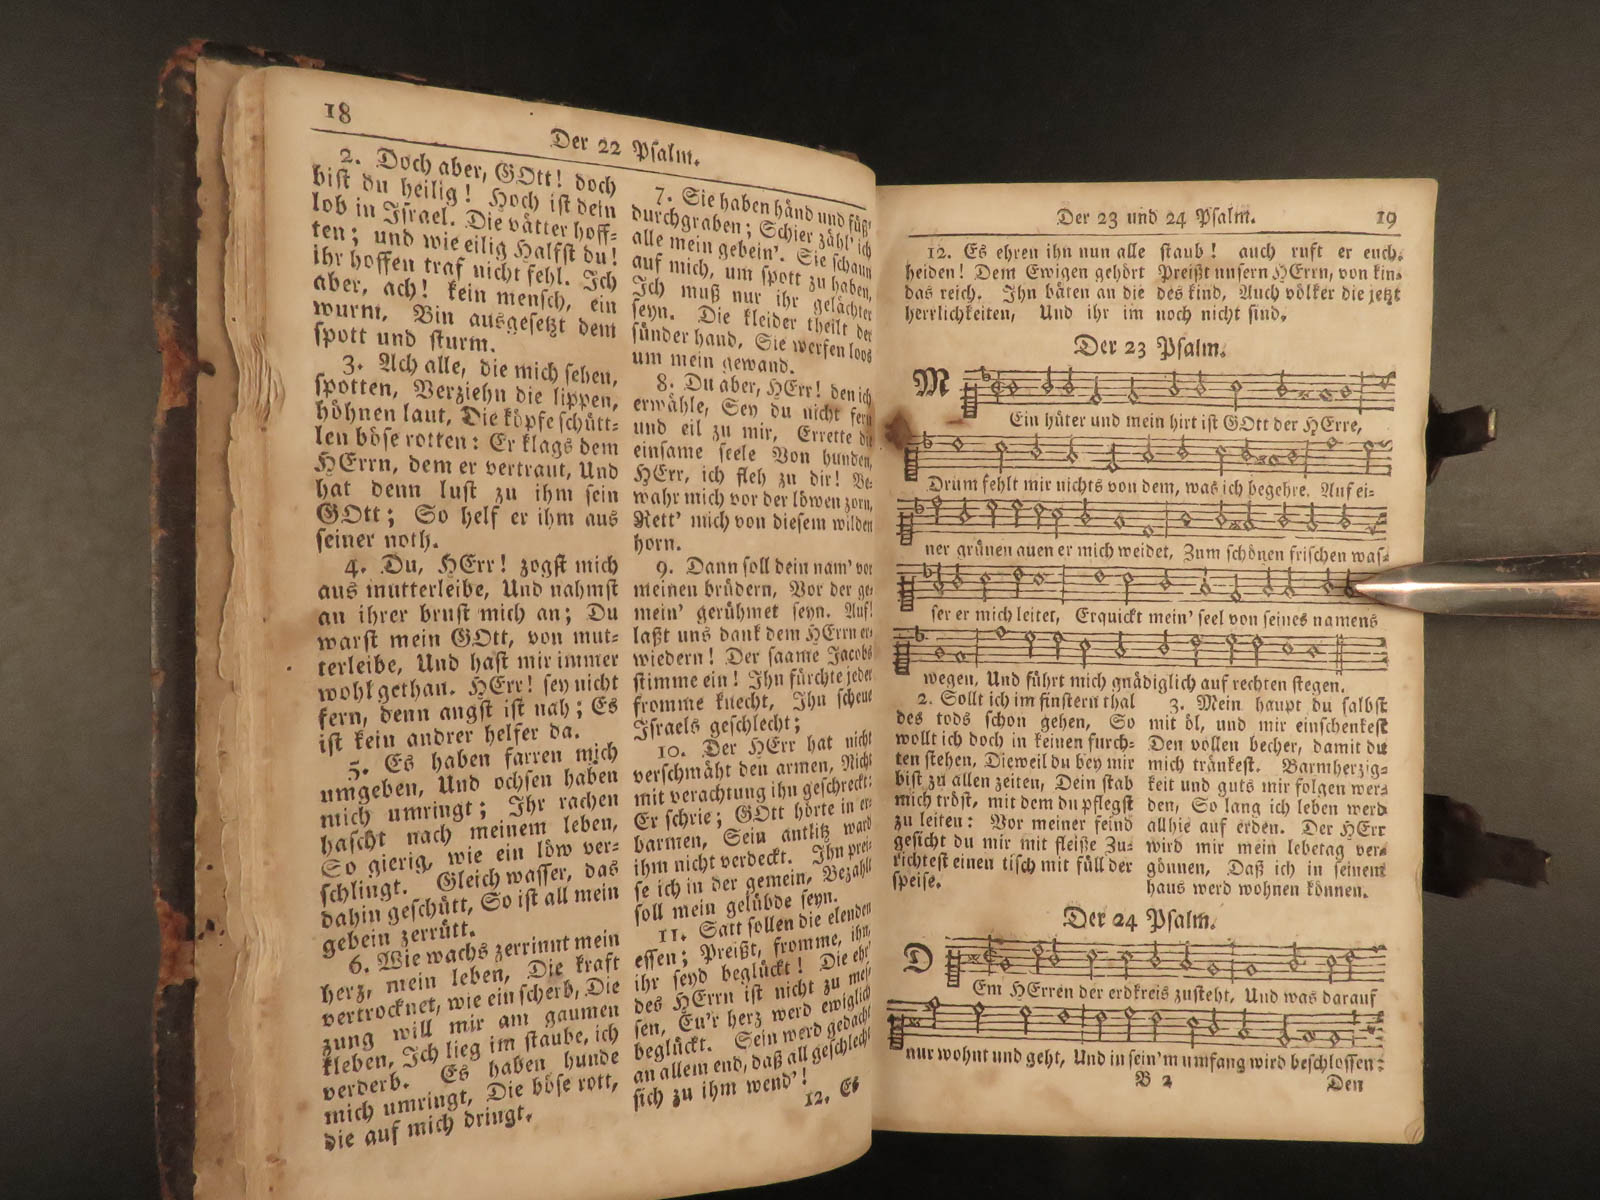 18
Der 22 Psalm.
2. Doch aber, GOtt! doch
bist du heilig! Hoch ist dein
lob in Israel. Die vätter hoff-
ten; und wie eilig Halfst du!
ihr hoffen traf nicht fehl. Ich
aber, ach! kein mensch, ein
wurm, Bin ausgesetzt dem
spott und sturm.
3. Ach alle, die mich sehen,
spotten, Verziehn die lippen,
höhnen laut, Die köpfe schütt-
len böse rotten: Er klags dem
HErrn, dem er vertraut, Und
hat denn lust zu ihm sein
GOtt; So helf er ihm aus
seiner noth.
4. Du, HErr! zogst mich
aus mutterleibe, Und nahmst
an ihrer brust mich an; Du
warst mein GOtt, von mut-
terleibe, Und hast mir immer
wohl gethan. HErr! sey nicht
fern, denn angst ist nah; Es
ist kein andrer helfer da.
5. Es haben farren mich
umgeben, Und ochsen haben
mich umringt; Ihr rachen
hascht nach meinem leben,
So gierig, wie ein löw ver-
schlingt. Gleich wasser, das
dahin geschütt, So ist all mein
gebein zerrütt.
6. Wie wachs zerrinnt mein
herz, mein leben, Die kraft
vertrocknet, wie ein scherb, Die
zung will mir am gaumen
kleben, Ich lieg im staube, ich
verderb. Es haben hunde
mich umringt, Die böse rott,
die auf mich dringt.
7. Sie haben händ und füß'
durchgraben; Schier zähl' ich
alle mein gebein'. Sie schaun
auf mich, um spott zu haben,
Ich muß nur ihr gelächter
seyn. Die kleider theilt der
sünder hand, Sie werfen loos
um mein gewand.
8. Du aber, HErr! den ich
erwähle, Sey du nicht fern
und eil zu mir, Errette die
einsame seele Von hunden,
HErr, ich fleh zu dir! Be-
wahr mich vor der löwen zorn,
Rett' mich von diesem wilden
horn.
9. Dann soll dein nam' vor
meinen brüdern, Vor der ge-
mein' gerühmet seyn. Auf!
laßt uns dank dem HErrn er-
wiedern! Der saame Jacobs
stimme ein! Ihn fürchte jeder
fromme knecht, Ihn scheue
Israels geschlecht;
10. Der HErr hat nicht
verschmäht den armen, Nicht
mit verachtung ihn geschreckt:
Er schrie; GOtt hörte in er-
barmen, Sein antlitz ward
ihm nicht verdeckt. Ihn prei-
se ich in der gemein, Bezahlt
soll mein gelübde seyn.
11. Satt sollen die elenden
essen; Preißt, fromme, ihn,
ihr seyd beglückt! Die ehr'
des HErrn ist nicht zu mes-
sen, Eu'r herz werd ewiglich
beglückt. Sein werd gedacht
an allem end, daß all geschlecht
sich zu ihm wend'!
12. Es
Der 23 und 24 Psalm. 19
12. Es ehren ihn nun alle
heiden! Dem Ewigen gehört
das reich. Ihn bäten an die
herrlichkeiten, Und ihr im
staub! auch ruft er euch.
Preißt unsern HErrn, von kin-
des kind, Auch völker die jetzt
noch nicht sind.
Der 23 Psalm.
Mein hüter und mein hirt ist GOtt der HErre,
Drum fehlt mir nichts von dem, was ich begehre. Auf ei-
ner grünen auen er mich weidet, Zum schönen frischen was-
ser er mich leitet, Erquickt mein' seel von seines namens
wegen, Und führt mich gnädiglich auf rechten stegen.
2. Sollt ich im finstern thal
des tods schon gehen, So
wollt ich doch in keinen furch-
ten stehen, Dieweil du bey mir
bist zu allen zeiten, Dein stab
mich tröst, mit dem du pflegst
zu leiten: Vor meiner feind
gesicht du mir mit fleiße Zu-
richtest einen tisch mit füll der
speise.
3. Mein haupt du salbst
mit öl, und mir einschenkest
Den vollen becher, damit du
mich tränkest. Barmherzig-
keit und guts mir folgen wer-
den, So lang ich leben werd
allhie auf erden. Der HErr
wird mir mein lebetag ver-
gönnen, Daß ich in seinem
haus werd wohnen können.
Der 24 Psalm.
Dem HErren der erdkreis zusteht, Und was darauf
nur wohnt und geht, Und in sein'm umfang wird beschlossen:
B 2 Den